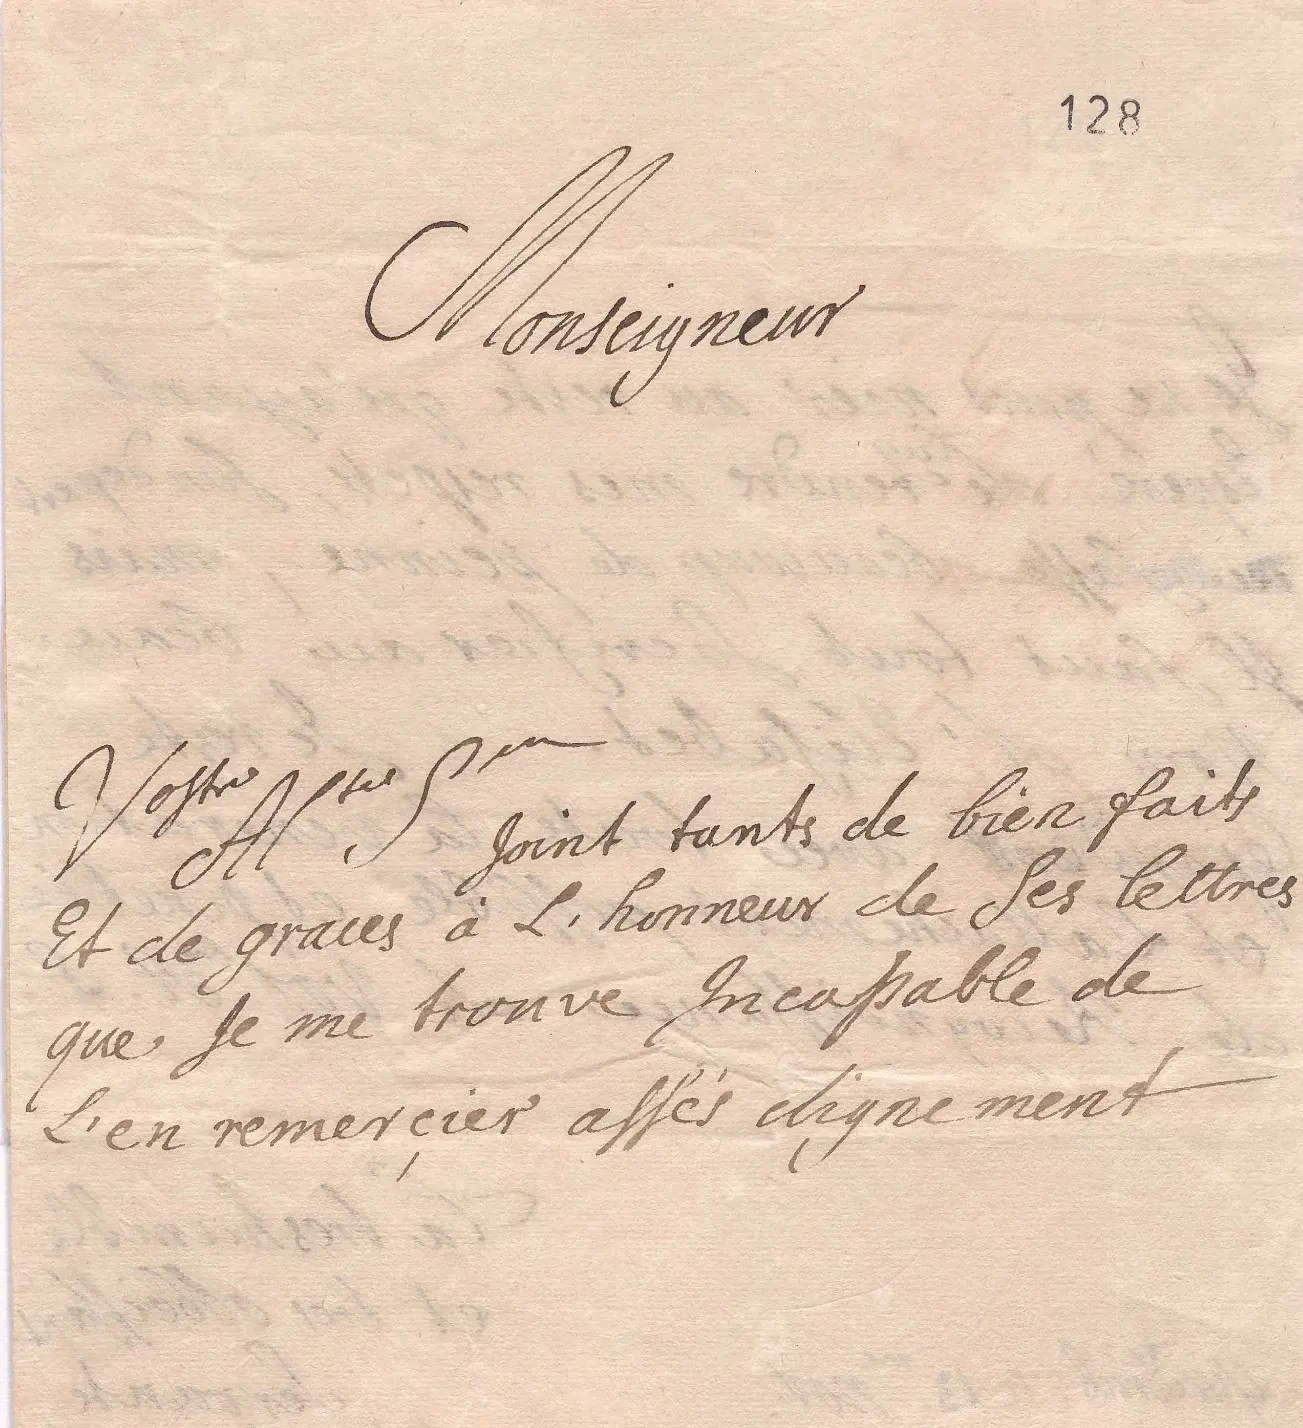 128
Monseigneur
Vostre Altes Sme
Joint tants de bien faits
Et de graces à L'honneur de Ses lettres
que Je me trouve Incapable de
L'en remerçier assés dignement